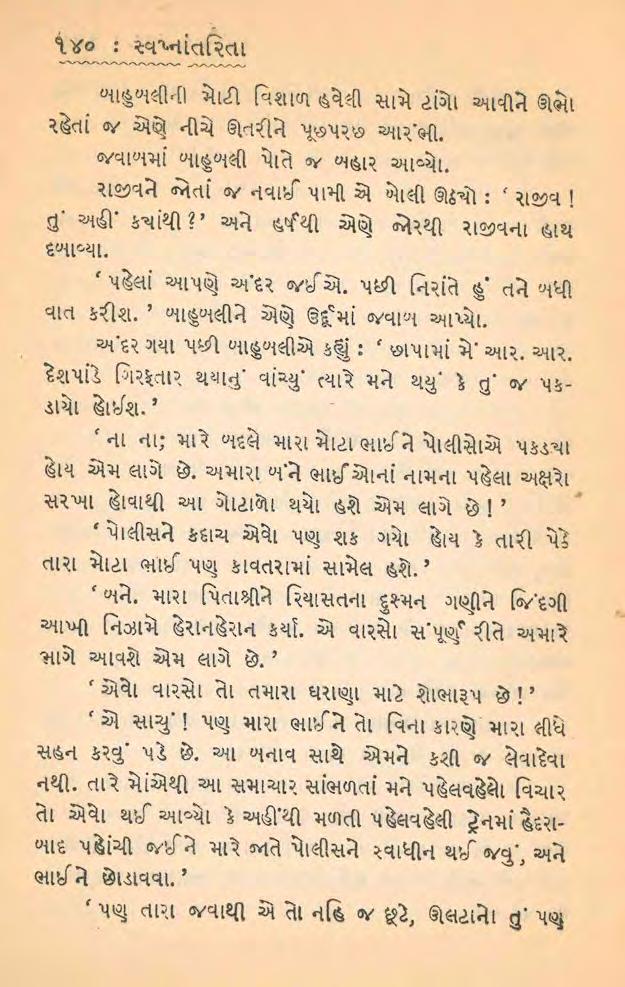 ૧૪૦ : સ્વપ્નાંતરિતા
બાહુબલીની મોટી વિશાળ હવેલી સામે ટાંગો આવીને ઊભો
રહેતાં જ એણે નીચે ઊતરીને પૂછપરછ આરંભી.
જવાબમાં બાહુબલી પોતે જ બહાર આવ્યો.
રાજીવને જોતાં જ નવાઈ પામી એ બોલી ઊઠ્યો : ‘ રાજીવ !
તું અહીં ક્યાંથી ?’ અને હર્ષથી એણે જોરથી રાજીવના હાથ
દબાવ્યા.
‘ પહેલાં આપણે અંદર જઈએ. પછી નિરાંતે હું તને બધી
વાત કરીશ. ’ બાહુબલીને એણે ઉર્દૂમાં જવાબ આપ્યો.
અંદર ગયા પછી બાહુબલીએ કહ્યું : ‘ છાપામાં મેં આર. આર.
દેશપાંડે ગિરફતાર થયાનું વાંચ્યું ત્યારે મને થયું કે તું જ પક-
ડાયો હોઈશ. ’
‘ ના ના; મારે બદલે મારા મોટા ભાઈને પોલીસોએ પકડ્યા
હોય એમ લાગે છે. અમારા બંને ભાઈઓનાં નામના પહેલા અક્ષરો
સરખા હોવાથી આ ગોટાળો થયો હશે એમ લાગે છે ! ’
‘ પોલીસને કદાચ એવો પણ શક ગયો હોય કે તારી પેઠે
તારા મોટા ભાઈ પણ કાવતરામાં સામેલ હશે. ’
‘ બને. મારા પિતાશ્રીને રિયાસતના દુશ્મન ગણીને જિંદગી
આખી નિઝામે હેરાનહેરાન કર્યા. એ વારસો સંપૂર્ણ રીતે અમારે
ભાગે આવશે એમ લાગે છે. ’
‘ એવો વારસો તો તમારા ઘરાણા માટે શોભારૂપ છે ! ’
‘ એ સાચું ! પણ મારા ભાઈને તો વિના કારણે મારા લીધે
સહન કરવું પડે છે. આ બનાવ સાથે એમને કશી જ લેવાદેવા
નથી. તારે મોંએથી આ સમાચાર સાંભળતાં મને પહેલવહેલો વિચાર
તો એવો થઈ આવ્યો કે અહીંથી મળતી પહેલવહેલી ટ્રેનમાં હૈદરા-
બાદ પહોંચી જઈને મારે જાતે પોલીસને સ્વાધીન થઈ જવું, અને
ભાઈને છોડાવવા. ’
‘ પણ તારા જવાથી એ તો નહિ જ છૂટે, ઊલટાનો તું પણ